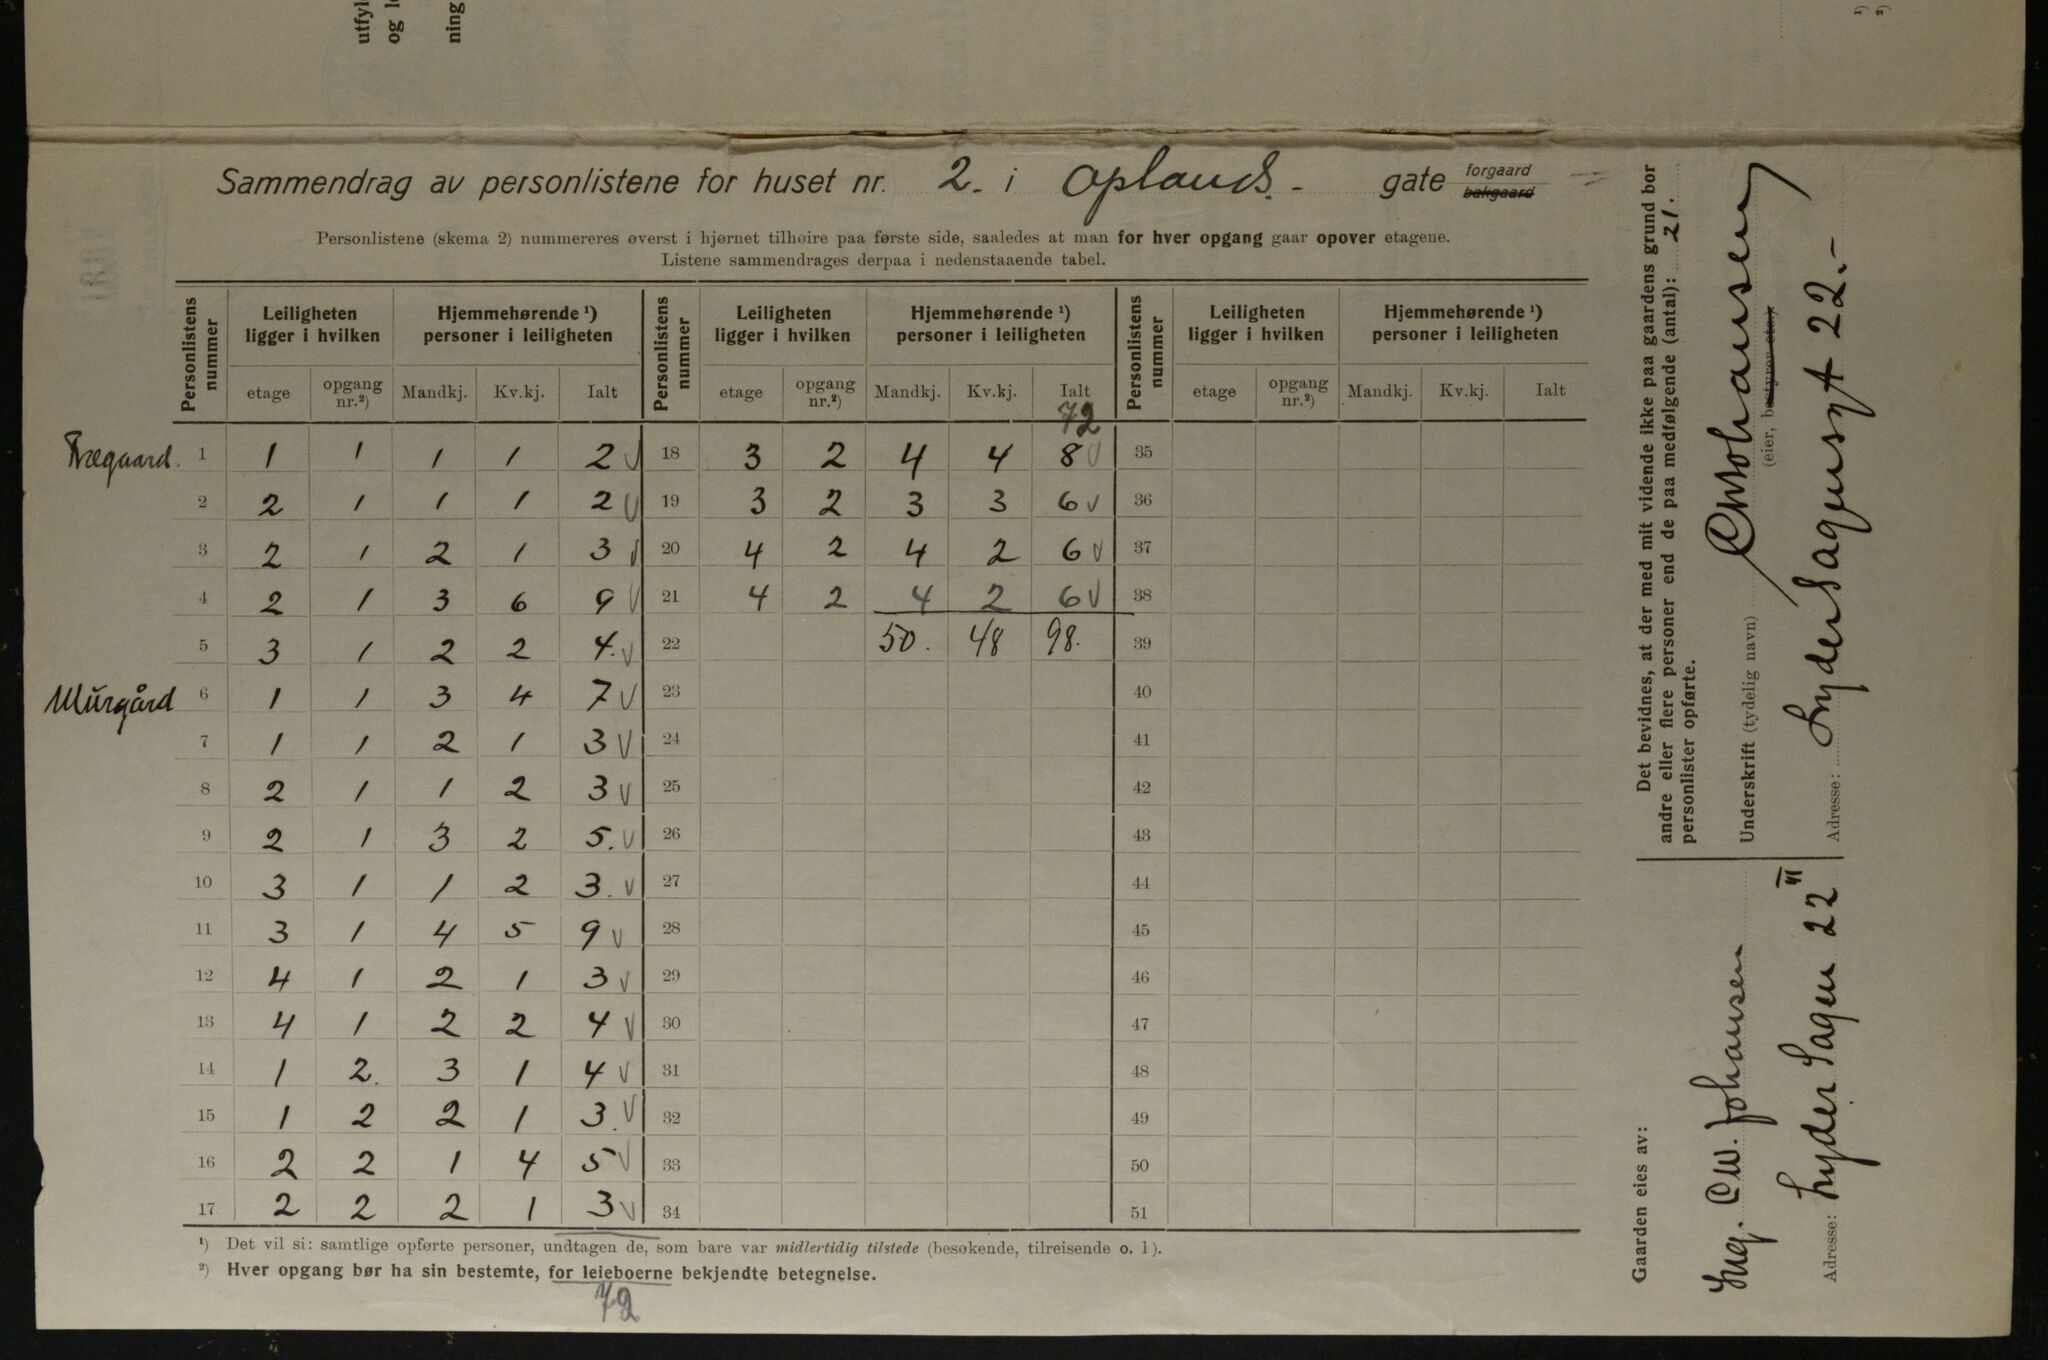 utfyl
og l
ning
1)
2)
Sammendrag av personlistene for huset nr. 2. i Oplands.- gate forgaard bakgaard
Personlistene (skema 2) nummereres øverst i hjørnet tilhøire paa første side, saaledes at man for hver opgang gaar opover etagene.
Listene sammendrages derpaa i nedenstaaende tabel.
Personlistens nummer | Leiligheten ligger i hvilken | Hjemmehørende ¹) personer i leiligheten | Personlistens nummer | Leiligheten ligger i hvilken | Hjemmehørende ¹) personer i leiligheten | Personlistens nummer | Leiligheten ligger i hvilken | Hjemmehørende ¹) personer i leiligheten
etage | opgang nr.²) | Mandkj. | Kv.kj. | Ialt | etage | opgang nr.²) | Mandkj. | Kv.kj. | Ialt | etage | opgang nr.²) | Mandkj. | Kv.kj. | Ialt
72
Trægaard. 1 1 1 1 1 2 V 18 3 2 4 4 8 V 35
2 2 1 1 1 2 V 19 3 2 3 3 6 V 36
3 2 1 2 1 3 V 20 4 2 4 2 6 V 37
4 2 1 3 6 9 V 21 4 2 4 2 6 V 38
5 3 1 2 2 4. V 22 50. 48 98. 39
Murgård 6 1 1 3 4 7 V 23 40
7 1 1 2 1 3 V 24 41
8 2 1 1 2 3 V 25 42
9 2 1 3 2 5. V 26 43
10 3 1 1 2 3. V 27 44
11 3 1 4 5 9 V 28 45
12 4 1 2 1 3 V 29 46
13 4 1 2 2 4 V 30 47
14 1 2. 3 1 4 V 31 48
15 1 2 2 1 3. V 32 49
16 2 2 1 4 5 V 33 50
17 2 2 2 1 3 V 34 51
¹) Det vil si: samtlige opførte personer, undtagen de, som bare var midlertidig tilstede (besøkende, tilreisende o. l).
²) Hver opgang bør ha sin bestemte, for leieboerne bekjendte betegnelse.
72
Det bevidnes, at der med mit vidende ikke paa gaardens grund bor
andre eller flere personer end de paa medfølgende (antal): 21.
personlister opførte.
Underskrift (tydelig navn) CWJohansen
(eier, bestyrer etc.)
Adresse: Lyder Sagensgt 22.-
Gaarden eies av:
Ing. C.W. Johansen
Adresse: Lyder Sagen 22 III